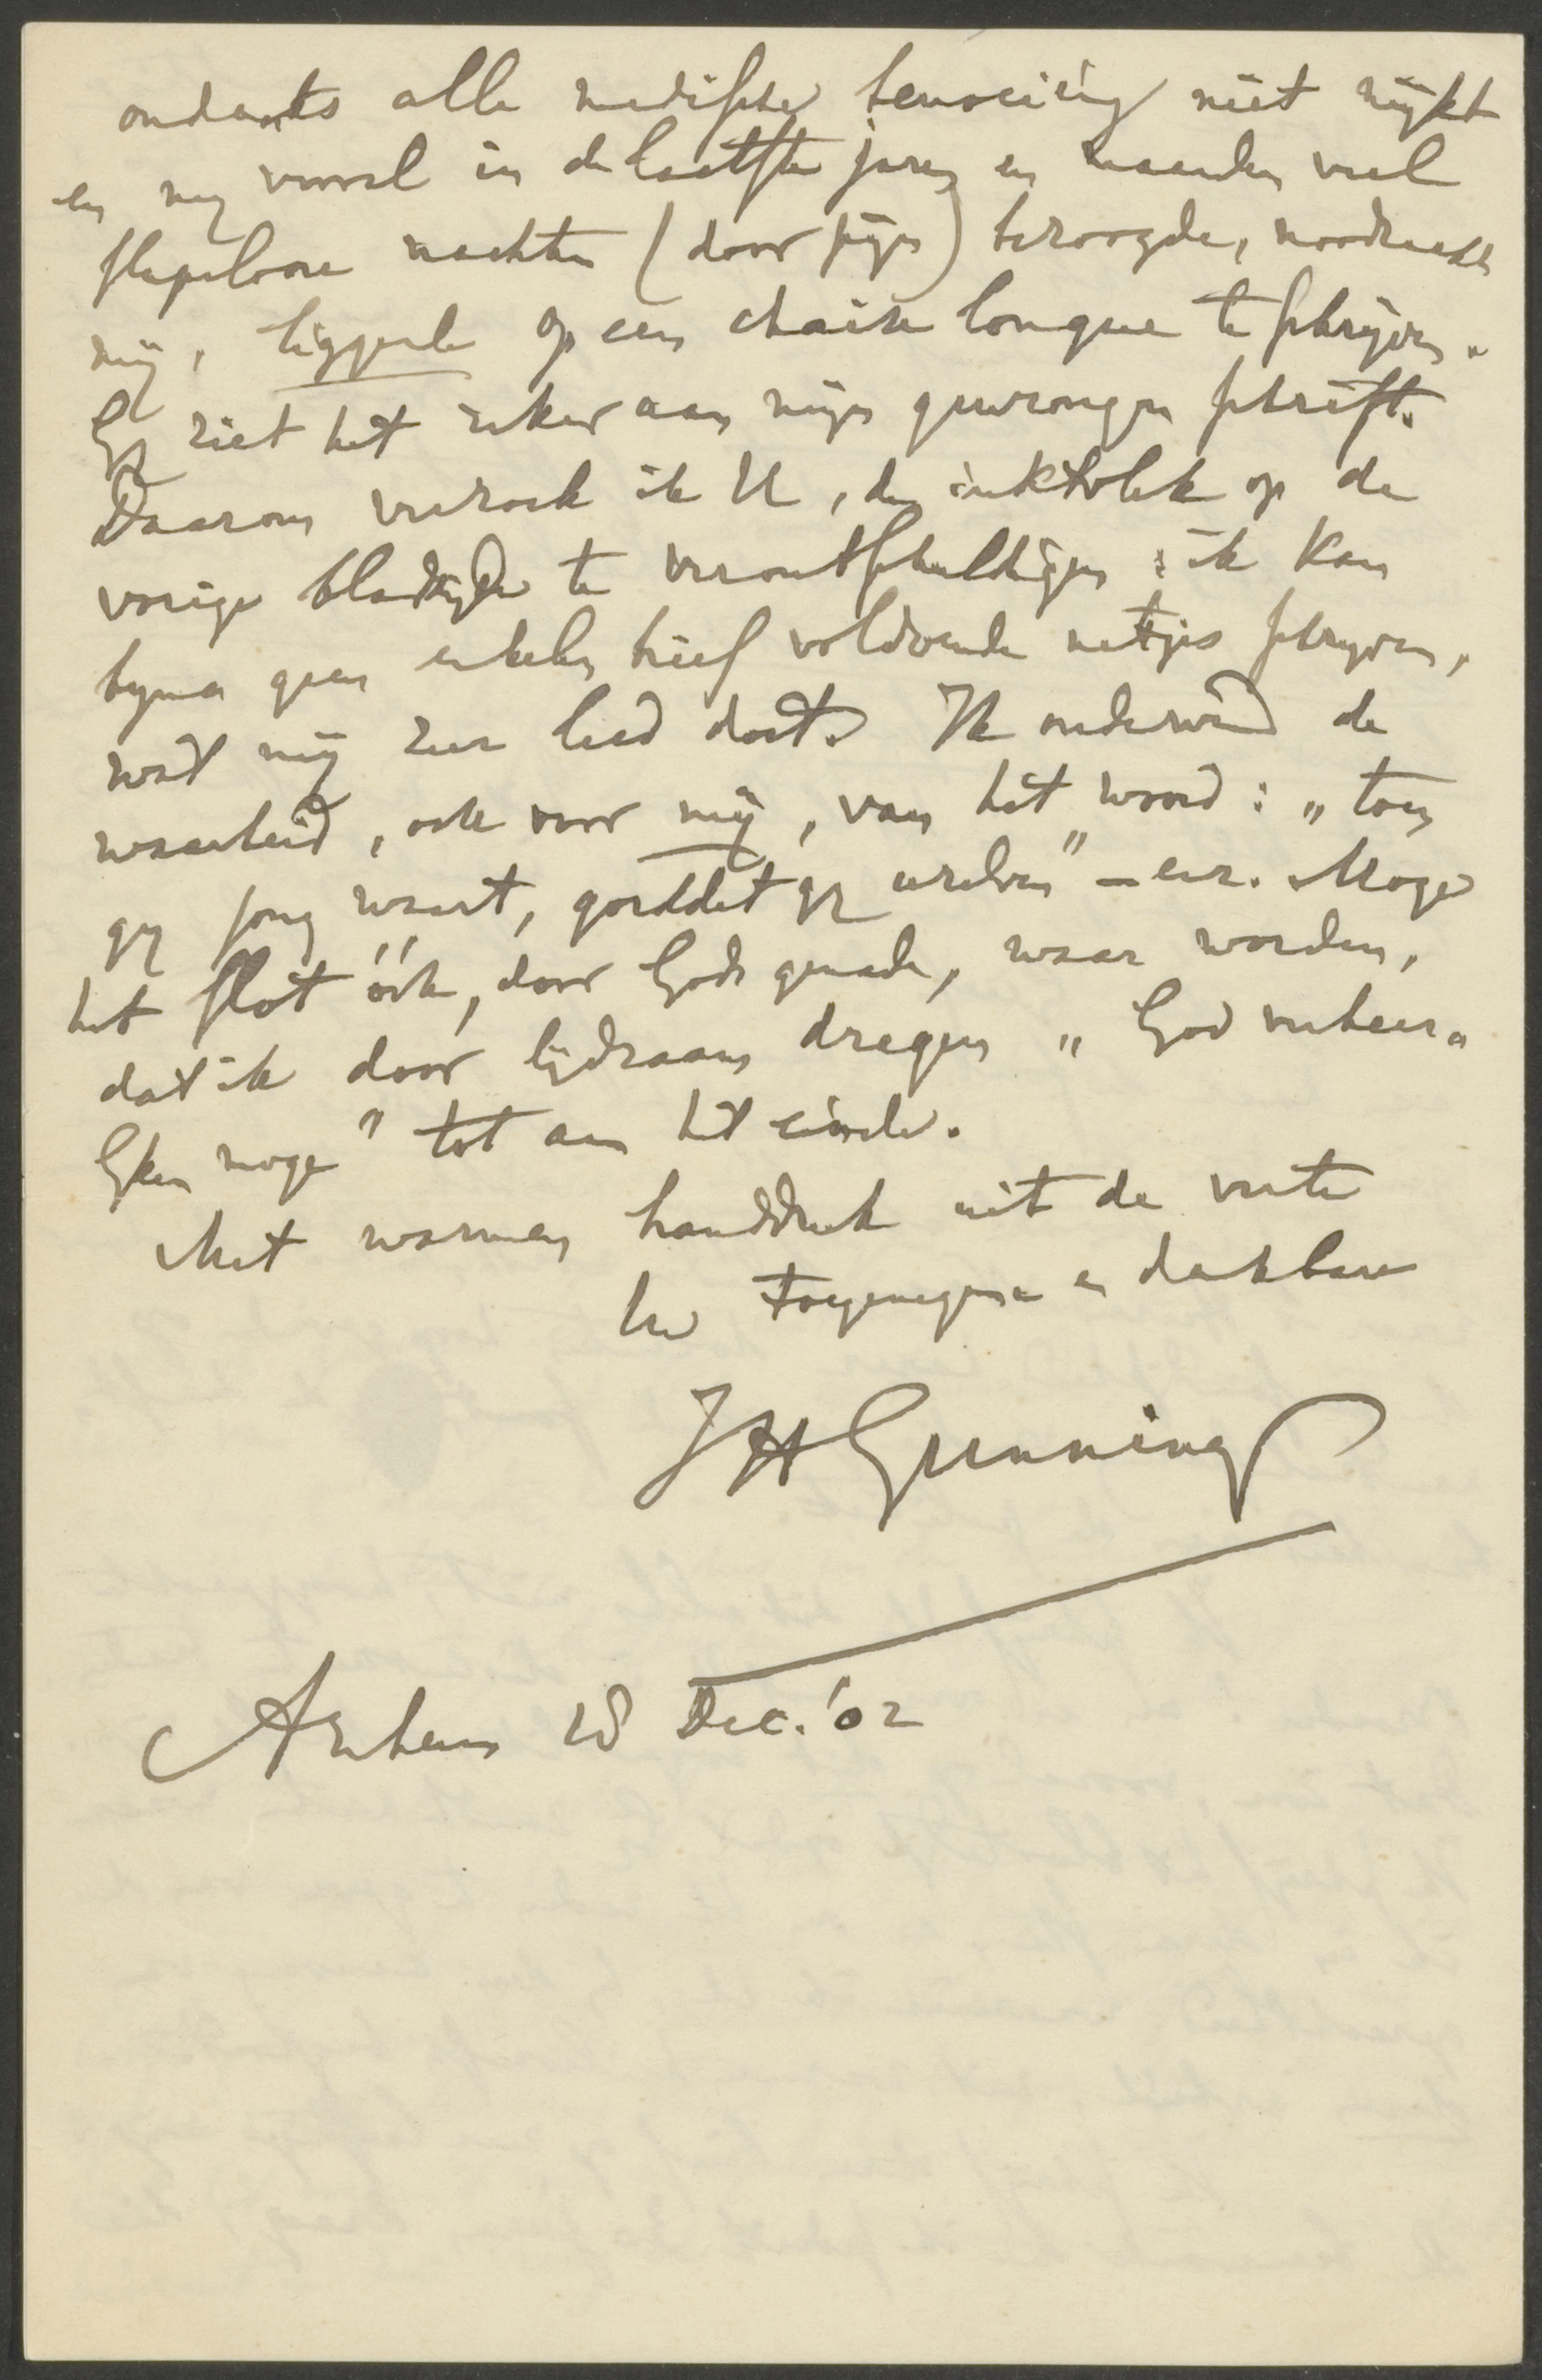 ondanks alle medische bemoeiing niet wijkt
en my vooral in de laatste jaren en maanden veel
slapelooze nachten (door pijn) bezorgde, noodzaakt
mij, liggende op een chaise longue te schrijven.
Gy ziet het zeker aan mijn gewrongen schrift.
Daarom verzoek ik U, den inktvlek op de
vorige bladzijde te verontschuldigen: ik kan
byna geen enkelen brief voldoende netjes schryven,
wat mij zeer leed doet. Ik ondervind de
waarheid, ook voor mij, van het woord: „toen
gy jong waart, gorddet gy uzelven" – enz. Moge
het slot óók, door Gods genade, waar worden,
dat ik door lijdzaam dragen „God verheer-
lyken moge" tot aan het einde.
Met warmen handdruk uit de verte
Uw toegenegene en dankbare
JHGunning
Arnhem 28 Dec. '02